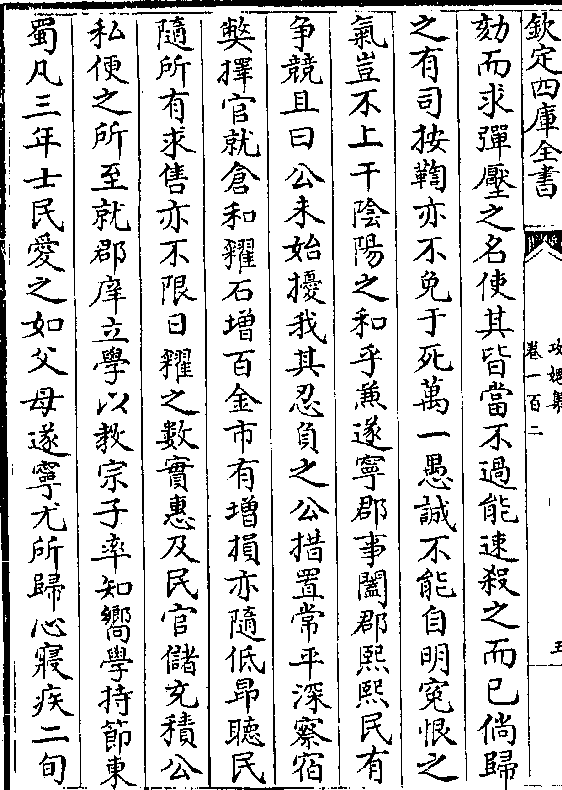 欽定四庫全書
攻媿集
卷一百二
五
劾而求彈壓之名使其皆當不過能速殺之而已倘歸
之有司按鞫亦不免于死萬一愚誠不能自明寃恨之
氣豈不上干陰陽之和乎兼遂寧郡事闔郡熙熙民有
争競且曰公未始擾我其忍負之公措置常平深察宿
弊擇官就倉和糴石增百金市有增損亦隨低昻聽民
隨所有求售亦不限日糴之數實惠及民官儲充積公
私便之所至就郡庠立學以教宗子率知嚮學持節東
蜀凡三年士民愛之如父母遂寧尤所歸心寢疾二旬